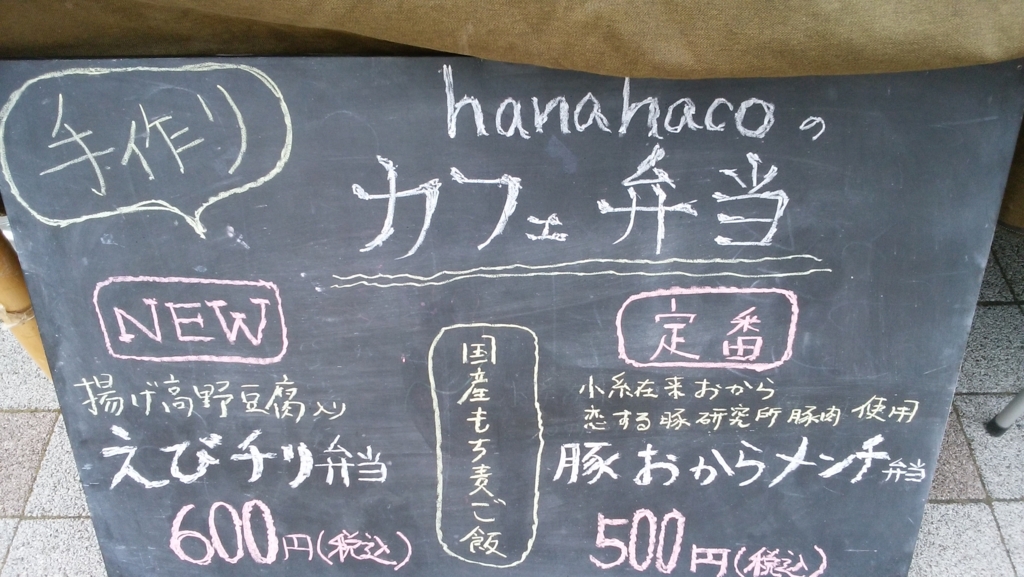 手作り
hanahacoの
カフェ弁当
NEW
揚げ高野豆腐入り
えびチリ弁当
600円(税込)
国産もち麦ご飯
定番
小糸在来おから
恋する豚研究所豚肉使用
豚おからメンチ弁当
500円(税込)